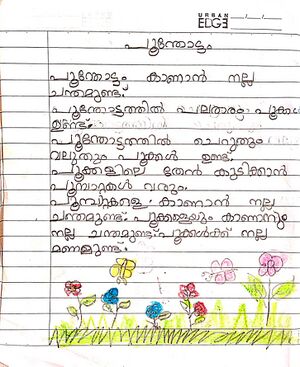 URBAN
EDGE
പൂന്തോട്ടം
പൂന്തോട്ടം കാണാൻ നല്ല
ചന്തമുണ്ട്.
പൂന്തോട്ടത്തിൽ പലതാരം പൂക്കൾ
ഉണ്ട്.
പൂന്തോട്ടത്തിൽ ചെറുതും
വലുതും പൂക്കൾ ഉണ്ട്.
പൂക്കളിലെ തേൻ കുടിക്കാൻ
പൂമ്പാറ്റകൾ വരും.
പൂമ്പാറ്റകളെ കാണാൻ നല്ല
ചന്തമുണ്ട്. പൂക്കളെയും കാണാനും
നല്ല ചന്തമുണ്ട്. പൂക്കൾക്ക് നല്ല
മണമുണ്ട്.